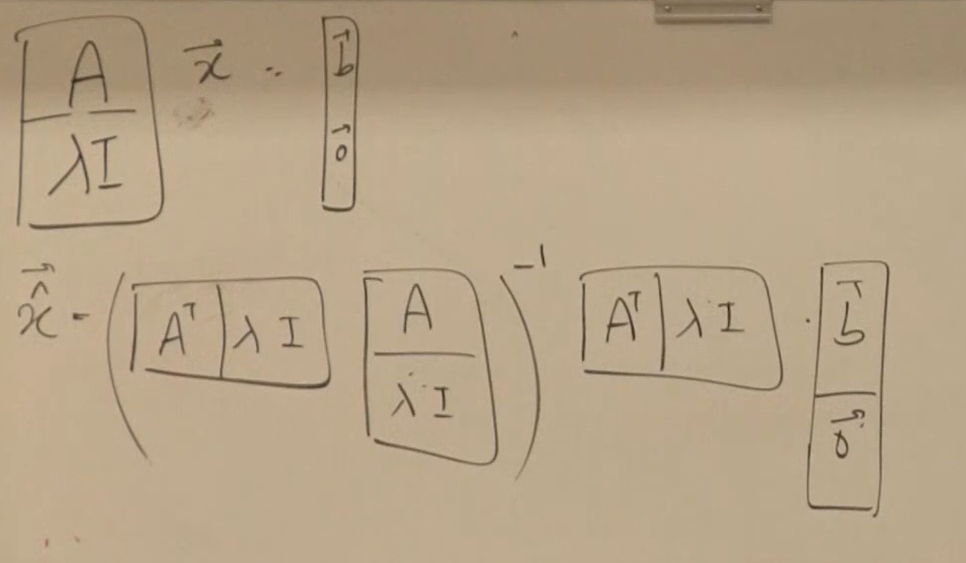 [A; λI] x⃗ = [b⃗; 0⃗]
x̂⃗ = ([Aᵀ | λI] [A; λI])⁻¹ [Aᵀ | λI] · [b⃗; 0⃗]